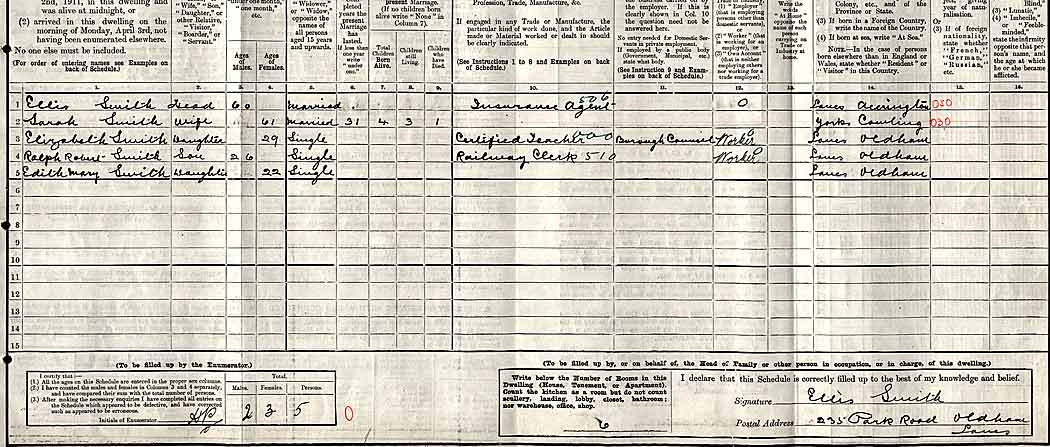 2nd, 1911, in this dwelling and
was alive at midnight, or
(2) arrived in this dwelling on the
morning of Monday, April 3rd, not
having been enumerated elsewhere.
No one else must be included.
(For order of entering names see Examples on
back of Schedule.)
"Wife," "Son,"
"Daughter," or
other Relative,
"Visitor,"
"Boarder," or
"Servant."
under one month,"
"one month,"
etc.
Ages
of
Males.
Ages
of
Females.
"Widower,"
or "Widow,"
opposite the
names of
all persons
aged 15 years
and upwards.
pleted
years the
present
Marriage
has
lasted.
If less than
one year
write
"under
one."
present Marriage.
(If no children born
alive write "None" in
Column 7).
Total
Children
Born
Alive.
Children
still
Living.
Children
who
have
Died.
Profession, Trade, Manufacture, &c.
If engaged in any Trade or Manufacture, the
particular kind of work done, and the Article
made or Material worked or dealt in should
be clearly indicated.
(See Instructions 1 to 8 and Examples on
back of Schedule.)
by the employer. If this is
clearly shown in Col. 10
the question need not be
answered here.
No entry needed for Domestic Servants
in private employment.
If employed by a public body
(Government, Municipal, etc.)
state what body.
(See Instruction 9 and Examples
on back of Schedule.)
(1) "Employer"
(that is employing
persons other than
domestic servants),
or
(2) "Worker" (that
is working for an
employer), or
(3) "Own Account"
(that is neither
employing others
nor working for a
trade employer).
Write the
words
"At Home"
opposite the
name of
each person
carrying on
Trade or
Industry at
Home.
Colony, etc., and of the
Province or State.
(3) If born in a Foreign Country,
write the name of the Country.
(4) If born at sea, write "At Sea."
NOTE.—In the case of persons
born elsewhere than in England or
Wales, state whether "Resident" or
"Visitor" in this Country.
year of natu-
ralisation.
Or
(3) If of foreign
nationality,
state whether
"French,"
"German,"
"Russian,"
etc.
(3) "Lunatic,"
(4) "Imbecile,"
or "Feeble-
minded,"
state the infirmity
opposite that per-
son's name, and
the age at which
he or she became
afflicted.
1. 2. 3. 4. 5. 6. 7. 8. 9. 10. 11. 12. 13. 14. 15. 16.
1 Ellis Smith Head 60 Married Insurance Agent 506 0 Lancs Accrington 030
2 Sarah Smith Wife 61 Married 31 4 3 1 Yorks Cowling 030
3 Elizabeth Smith Daughter 29 Single Certified Teacher 000 Borough Council Worker Lancs Oldham
4 Ralph Robert Smith Son 26 Single Railway Clerk 510 Worker Lancs Oldham
5 Edith Mary Smith Daughter 22 Single Lancs Oldham
6
7
8
9
10
11
12
13
14
15
(To be filled up by the Enumerator.)
I certify that:—
(1.) All the ages on this Schedule are entered in the proper sex columns.
(2.) I have counted the males and females in Columns 3 and 4 separately,
and have compared their sum with the total number of persons.
(3.) After making the necessary enquiries I have completed all entries on
the Schedule which appeared to be defective, and have corrected
such as appeared to be erroneous.
Initials of Enumerator
Total.
Males. Females. Persons.
2 3 5
0
(To be filled up by, or on behalf of, the Head of Family or other person in occupation, or in charge, of this dwelling.)
Write below the Number of Rooms in this
Dwelling (House, Tenement, or Apartment).
Count the kitchen as a room but do not count
scullery, landing, lobby, closet, bathroom;
nor warehouse, office, shop.
6
I declare that this Schedule is correctly filled up to the best of my knowledge and belief.
Signature Ellis Smith
Postal Address 235 Park Road Oldham
Lancs